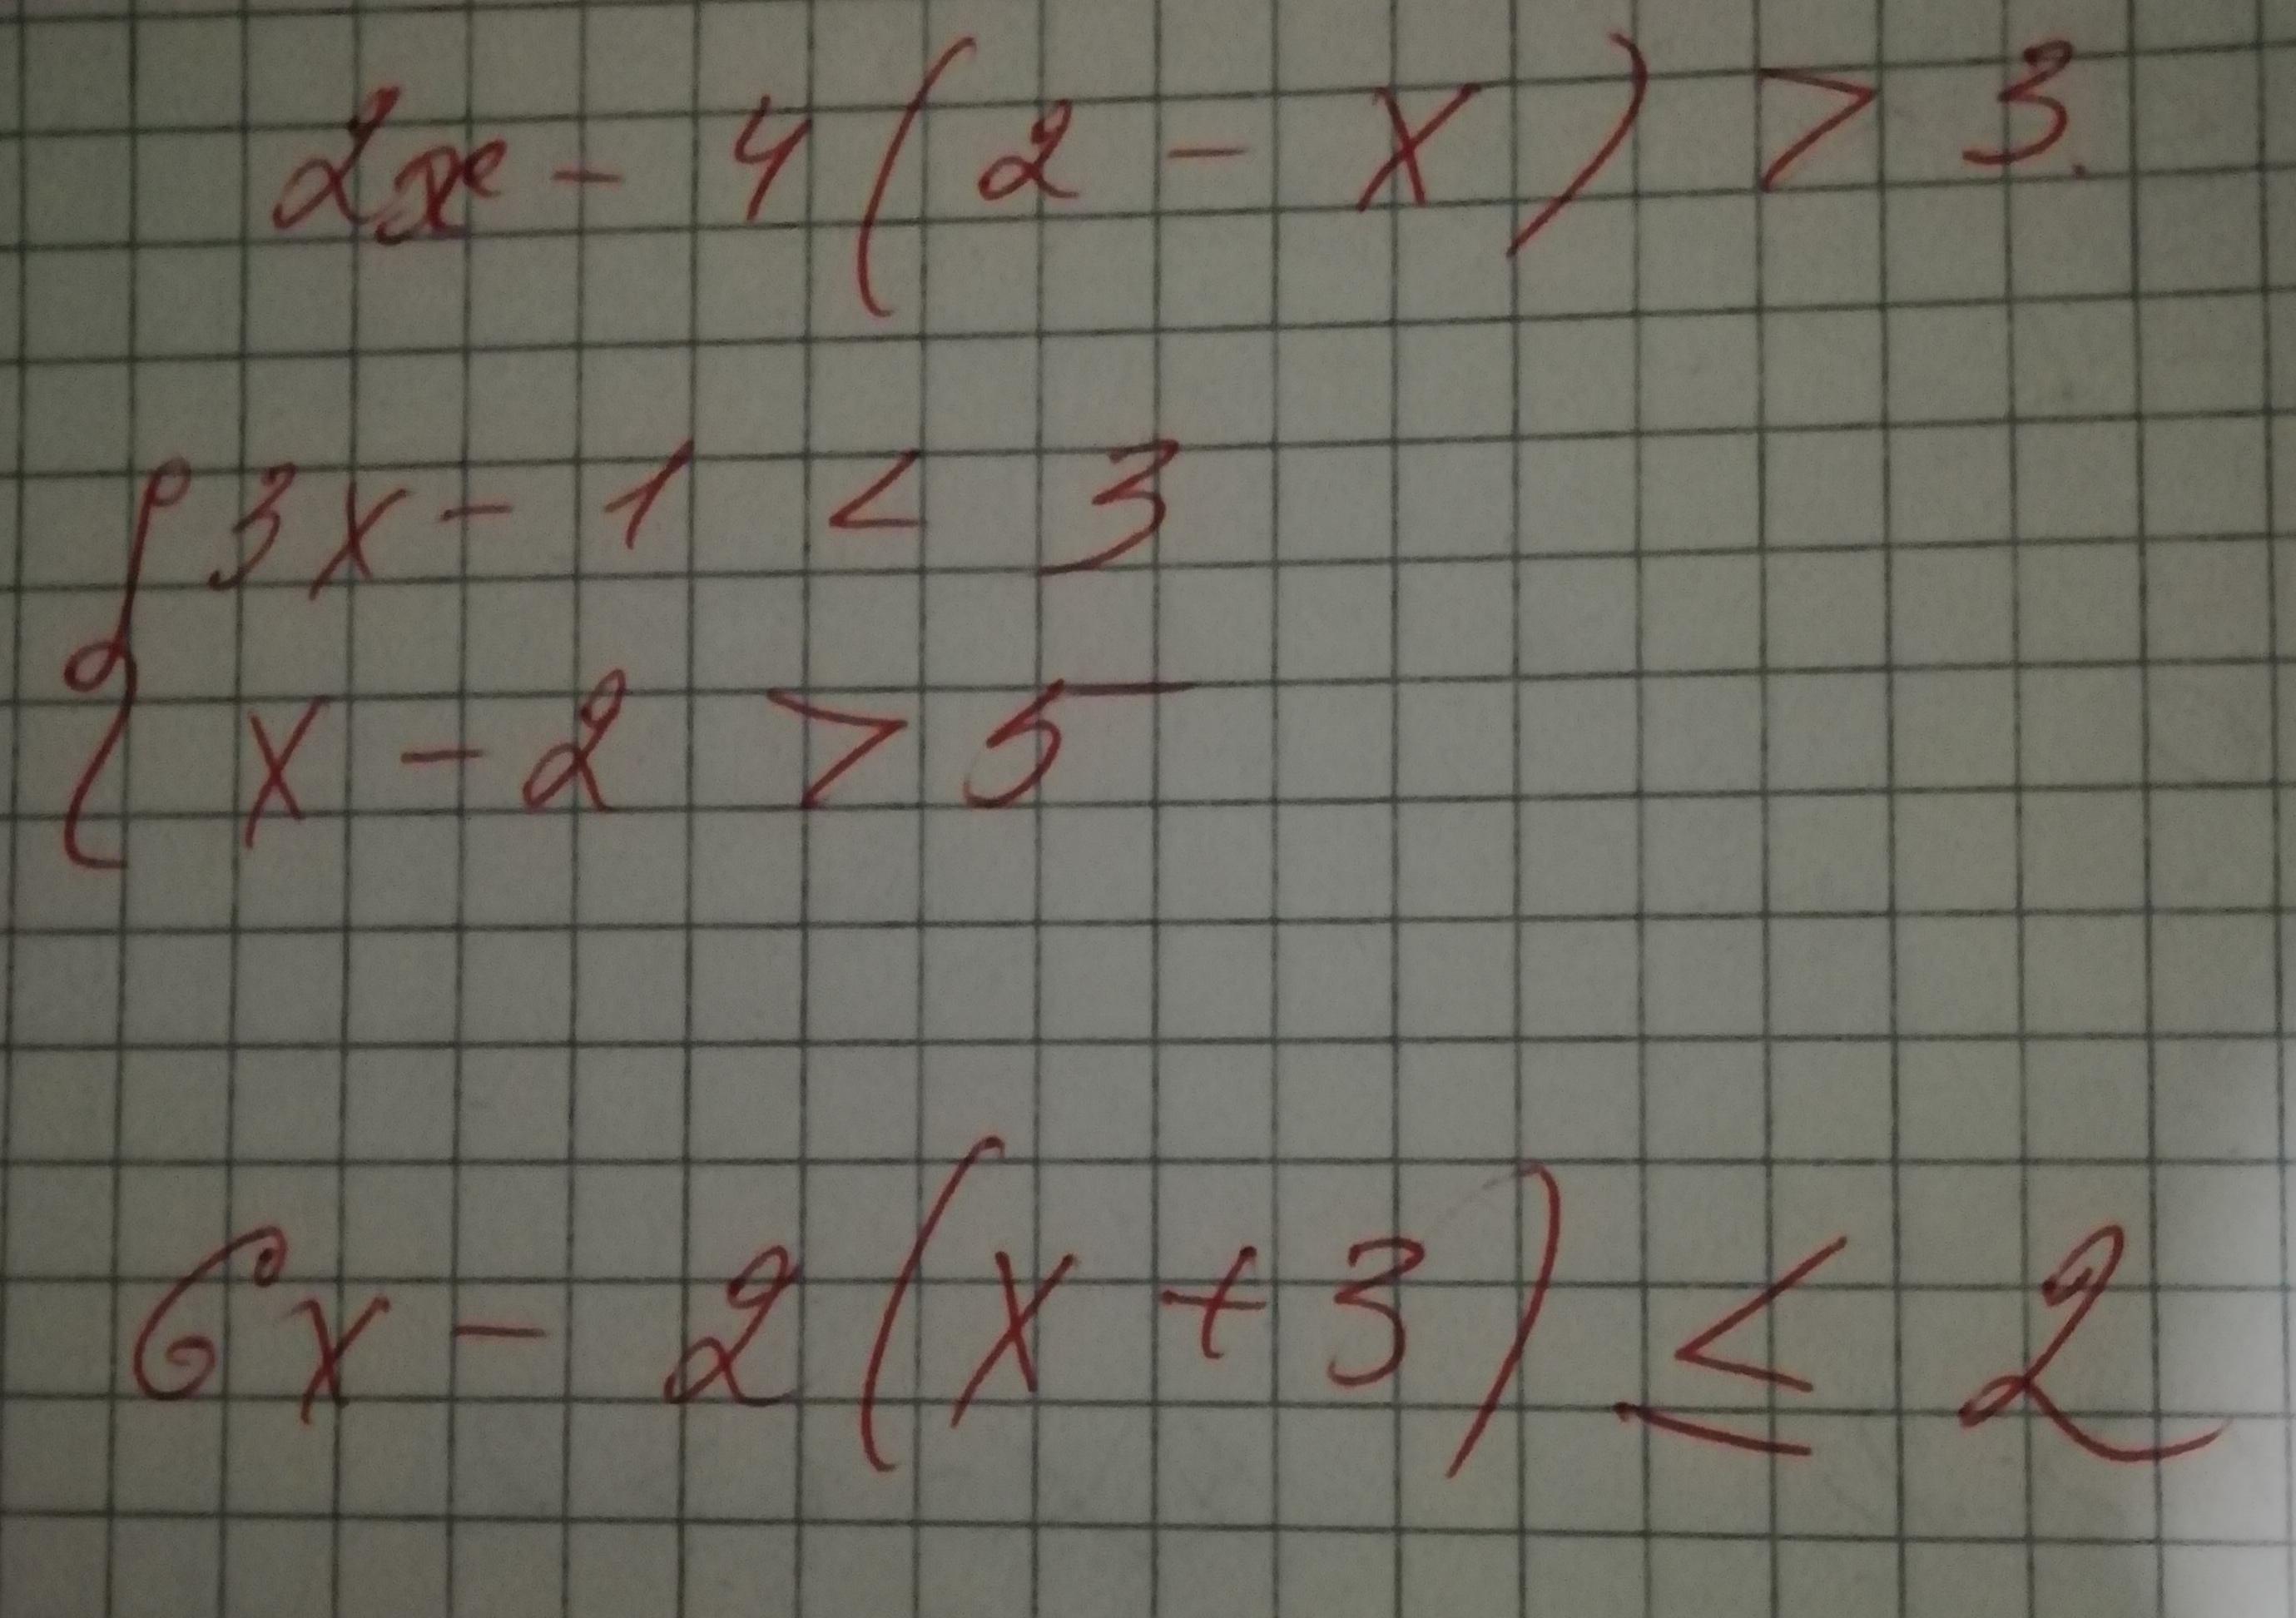 2x - 4(2 - x) > 3.
{ 3x - 1 < 3
x - 2 > 5
6x - 2(x + 3) ≤ 2